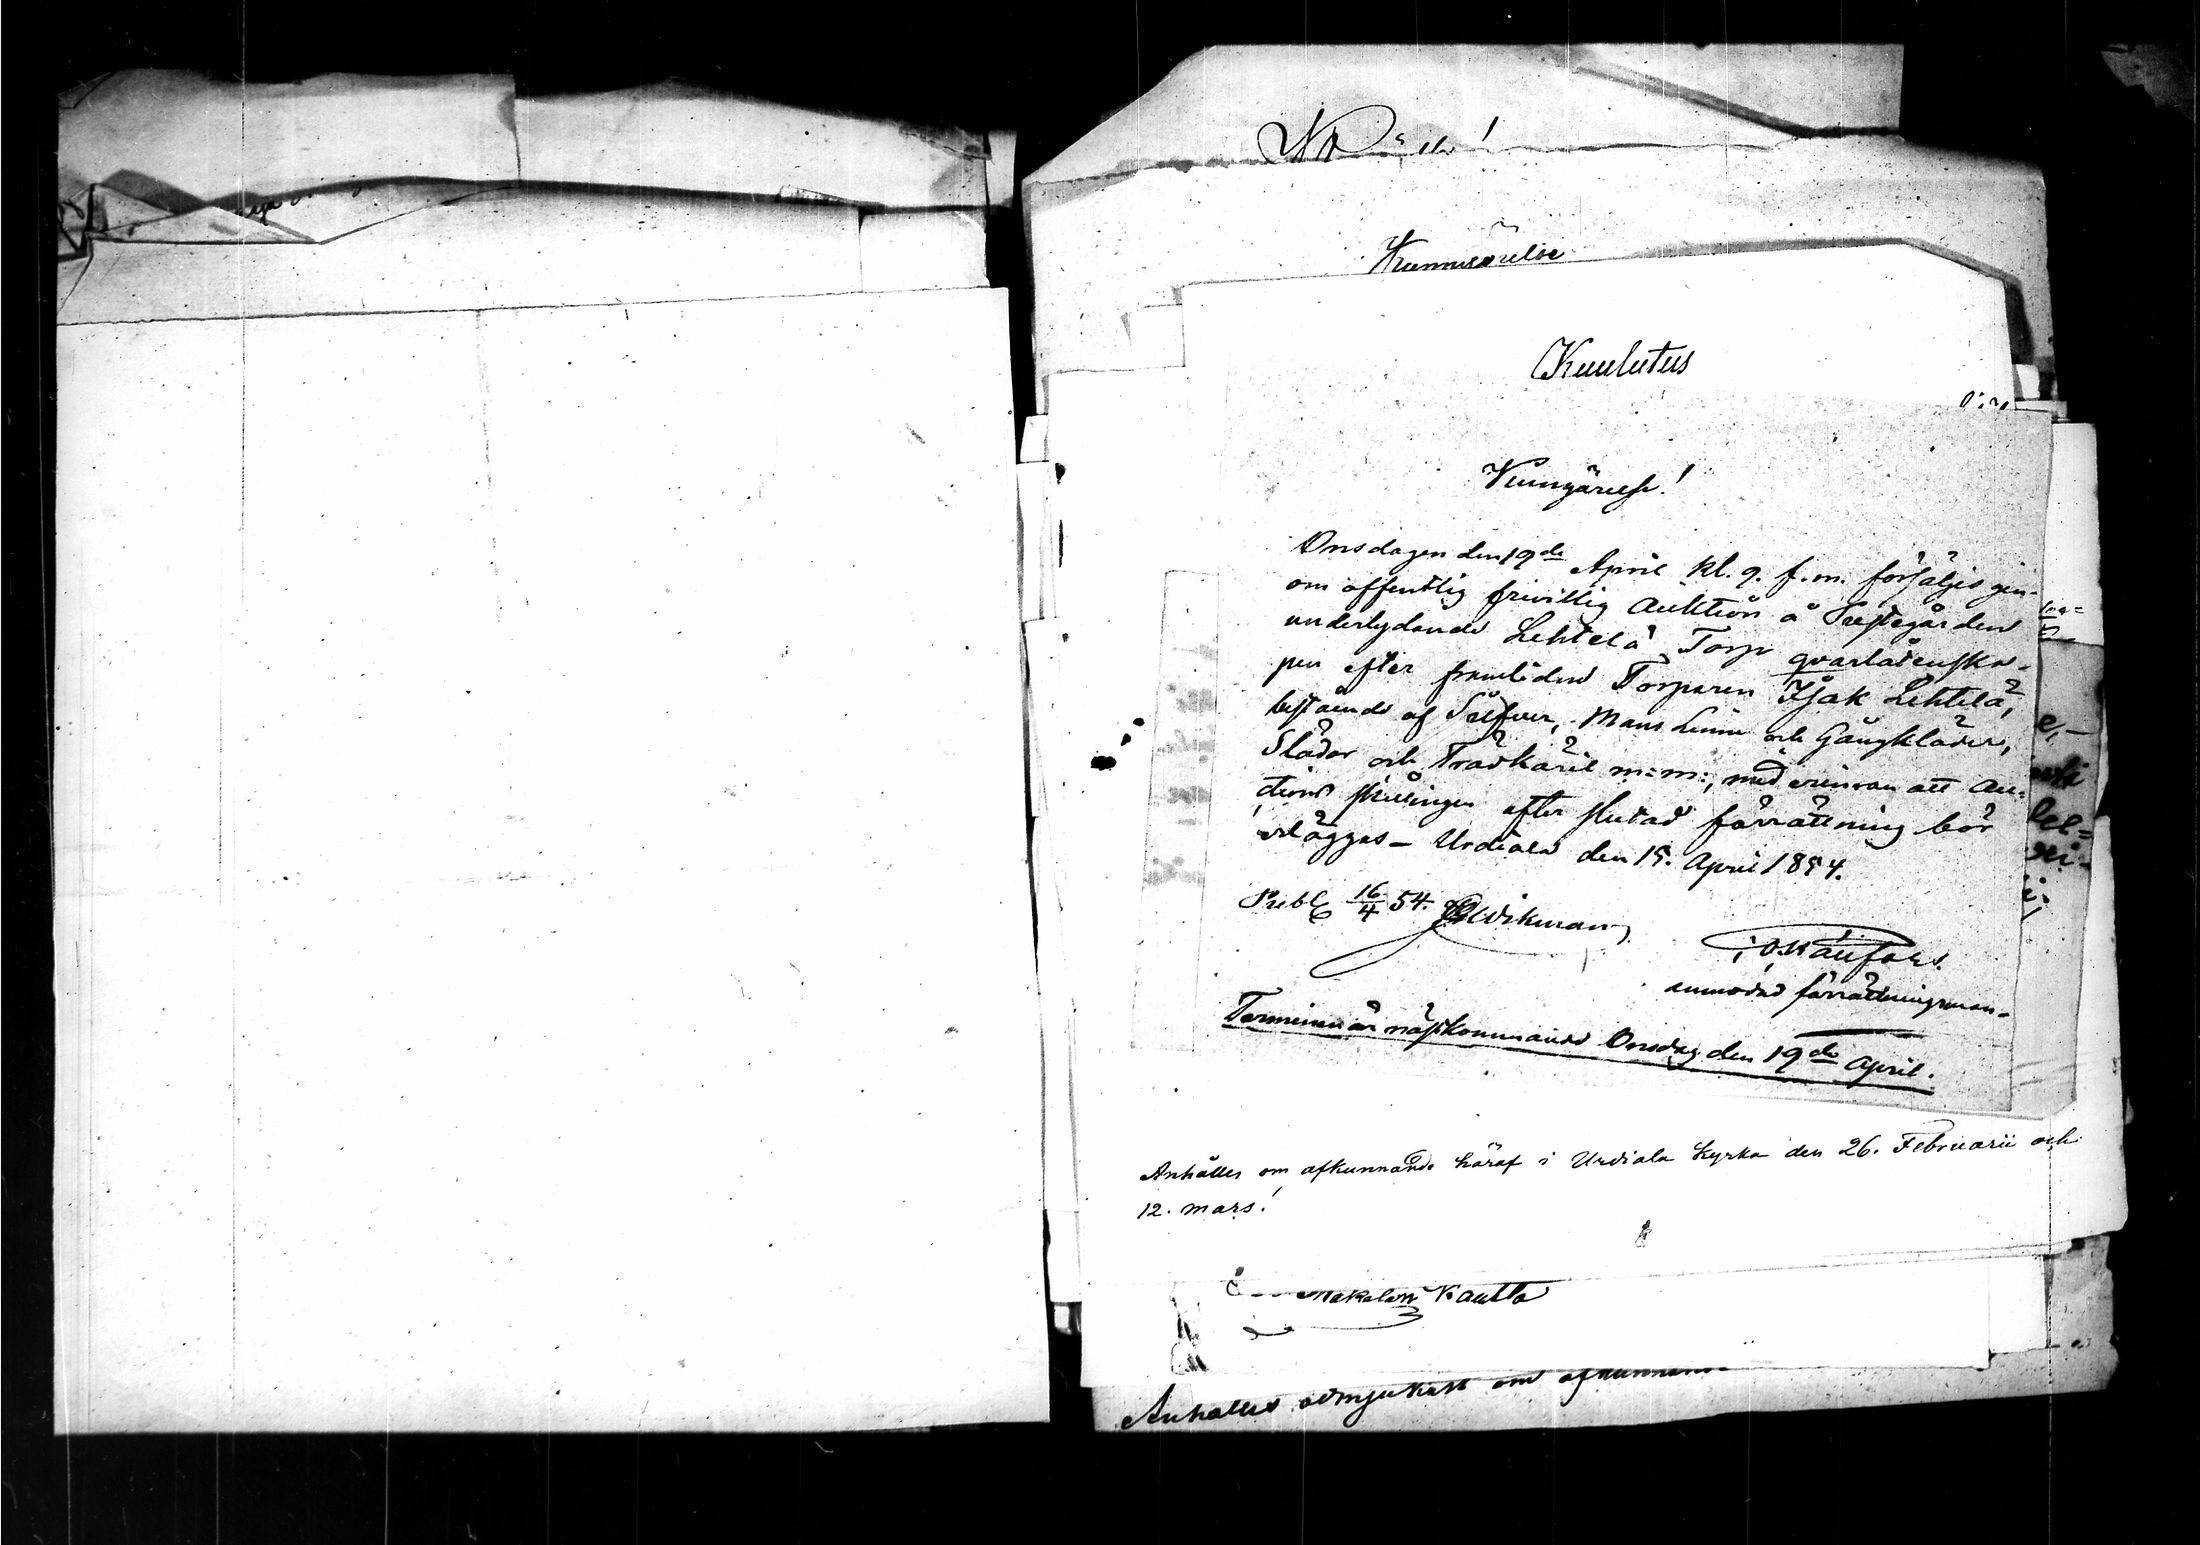 Kungörelse
Kuulutus
Kungörelse!
Onsdagen den 19de April kl. 9. f.m. försäljes gen-
om offentlig frivillig Auktion å Prestegården
underlydande Lehtelä Torp qvarlåtenska-
pen efter framlidne Torparen Isak Lehtelä,
bestående af Silfver, Mans Linne och Gångkläder,
Slädor och Trädkäril m:m:, med erinran att Auc-
tions skillingen efter slutad förrättning bör
erläggas — Urdiala den 15. April 1854.
Publ 16/4 54. Wikman
anmodad förrättningsman
Terminen är nästkommande Onsdag den 19de April.
Anhålles om afkunnande häraf i Urdiala Kyrka den 26. Februarii och
12. mars!
Kautto
Anhålles ödmjukast om afkunnande